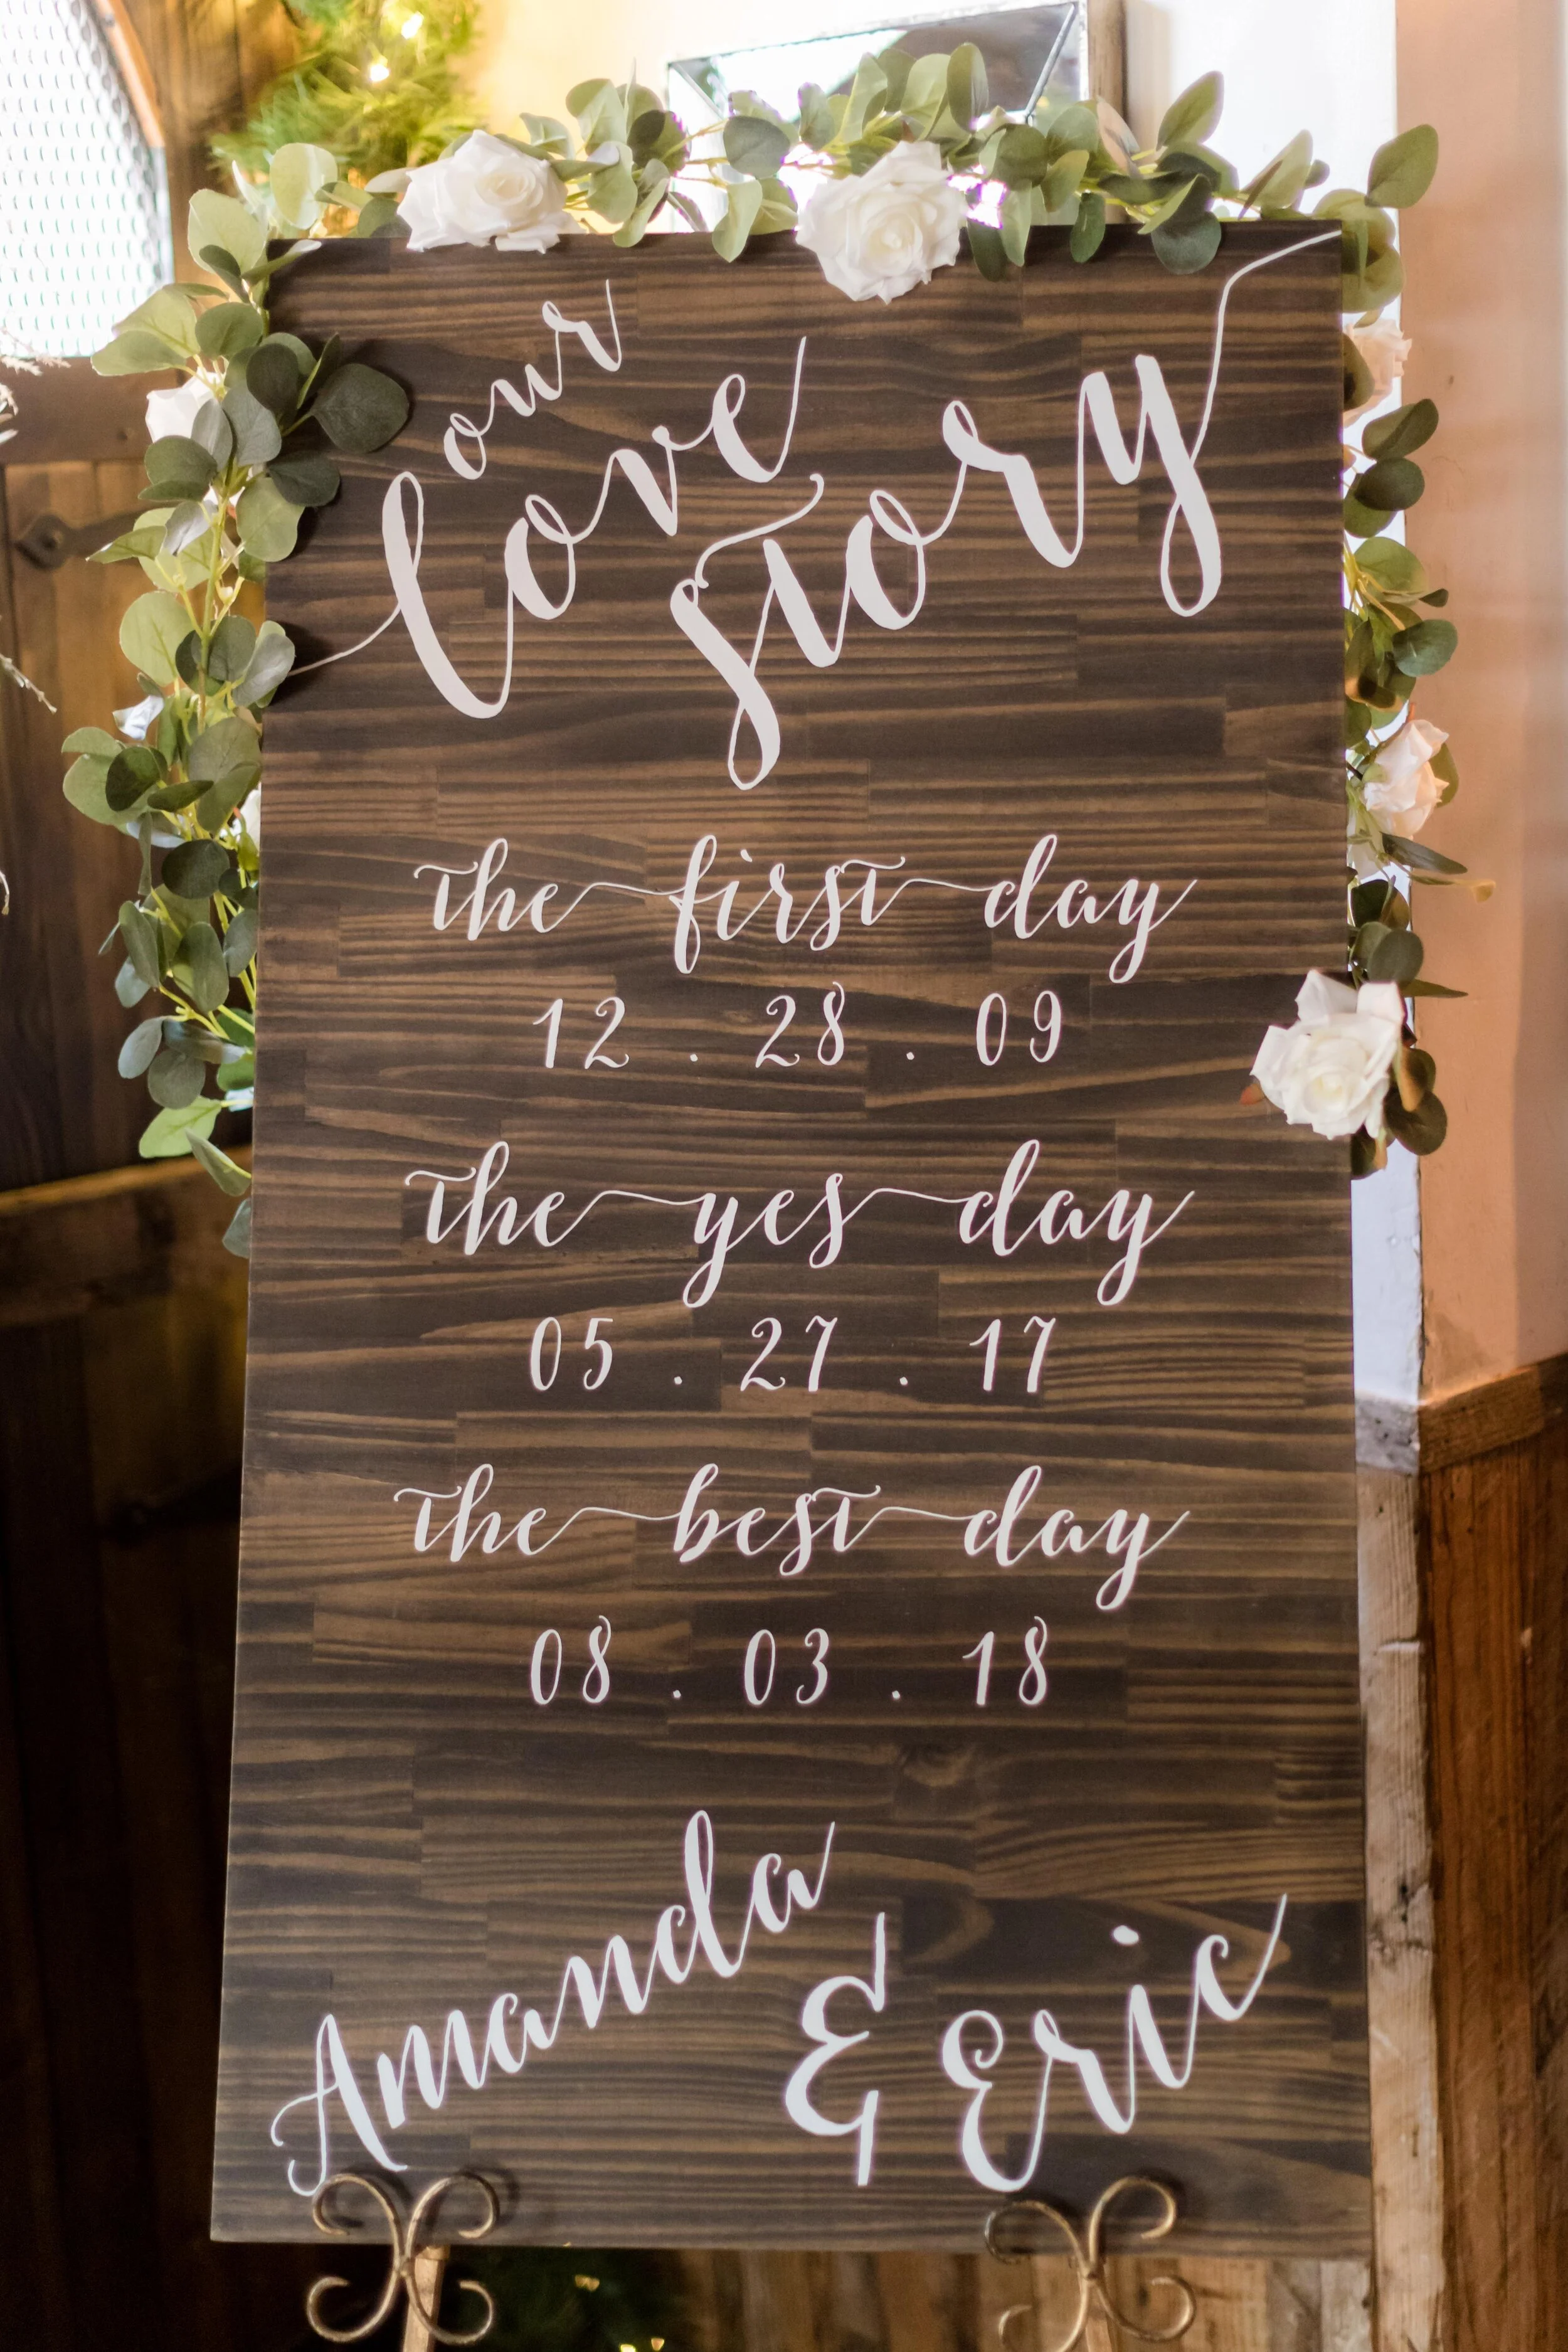 our
love
story
the first day
12 . 28 . 09
the yes day
05 . 27 . 17
the best day
08 . 03 . 18
Amanda
& Eric